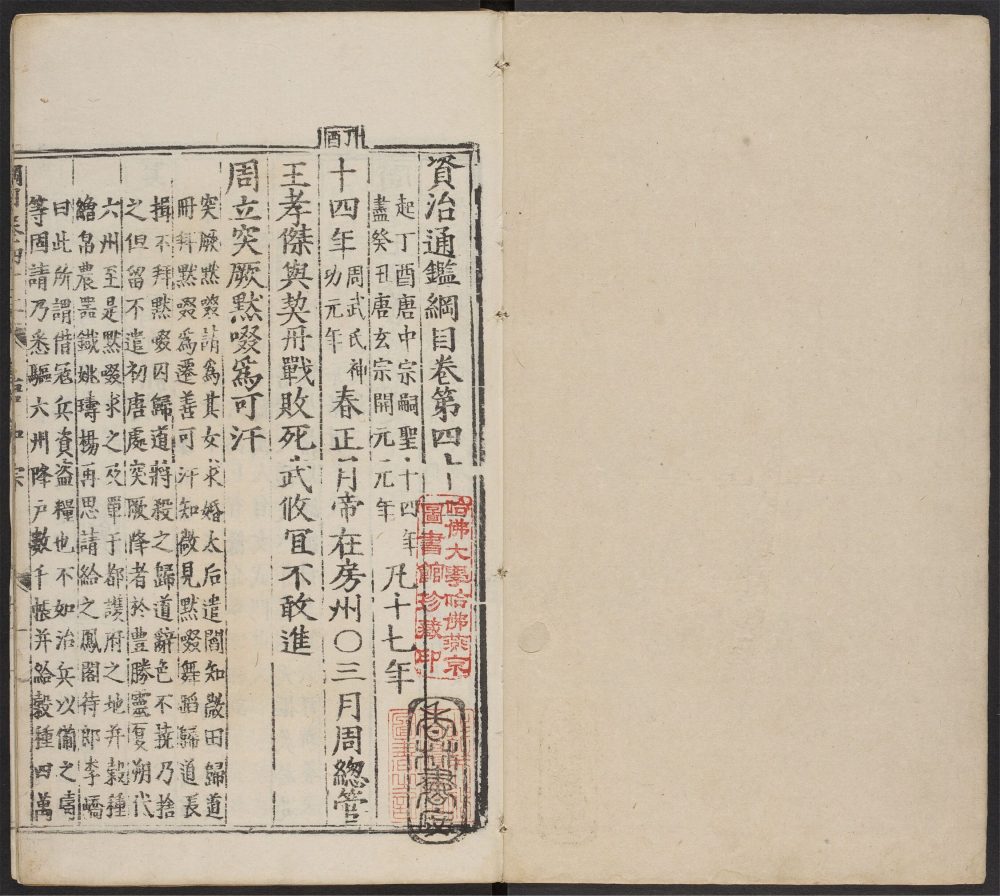 丁酉
資治通鑑綱目卷第四十
起丁酉唐中宗嗣聖十四年
盡癸丑唐玄宗開元元年
凡十七年
十四年周武氏神功元年春正月帝在房州〇三月周緫管
王孝傑與契丹戰敗死武攸冝不敢進
周立突厥黙啜爲可汗
突厥黙啜請爲其女求婚太后遣閻知微田歸道
冊拜黙啜爲遷善可汗知微見黙啜舞蹈歸道長
揖不拜黙啜囚歸道將殺之歸道辭色不撓乃捨
之但留不遣初唐處突厥降者於豊勝靈夏朔代
六州至是黙啜求之及單于都護府之地并穀種
繒帛農器鐡姚璹楊再思請給之鳳閣侍郎李嶠
曰此所謂借冦兵資盗糧也不如治兵以備之璹
等固請乃悉驅六州降戸數千帳并給穀種四萬
哈佛大學哈佛燕京
圖書館珍藏印